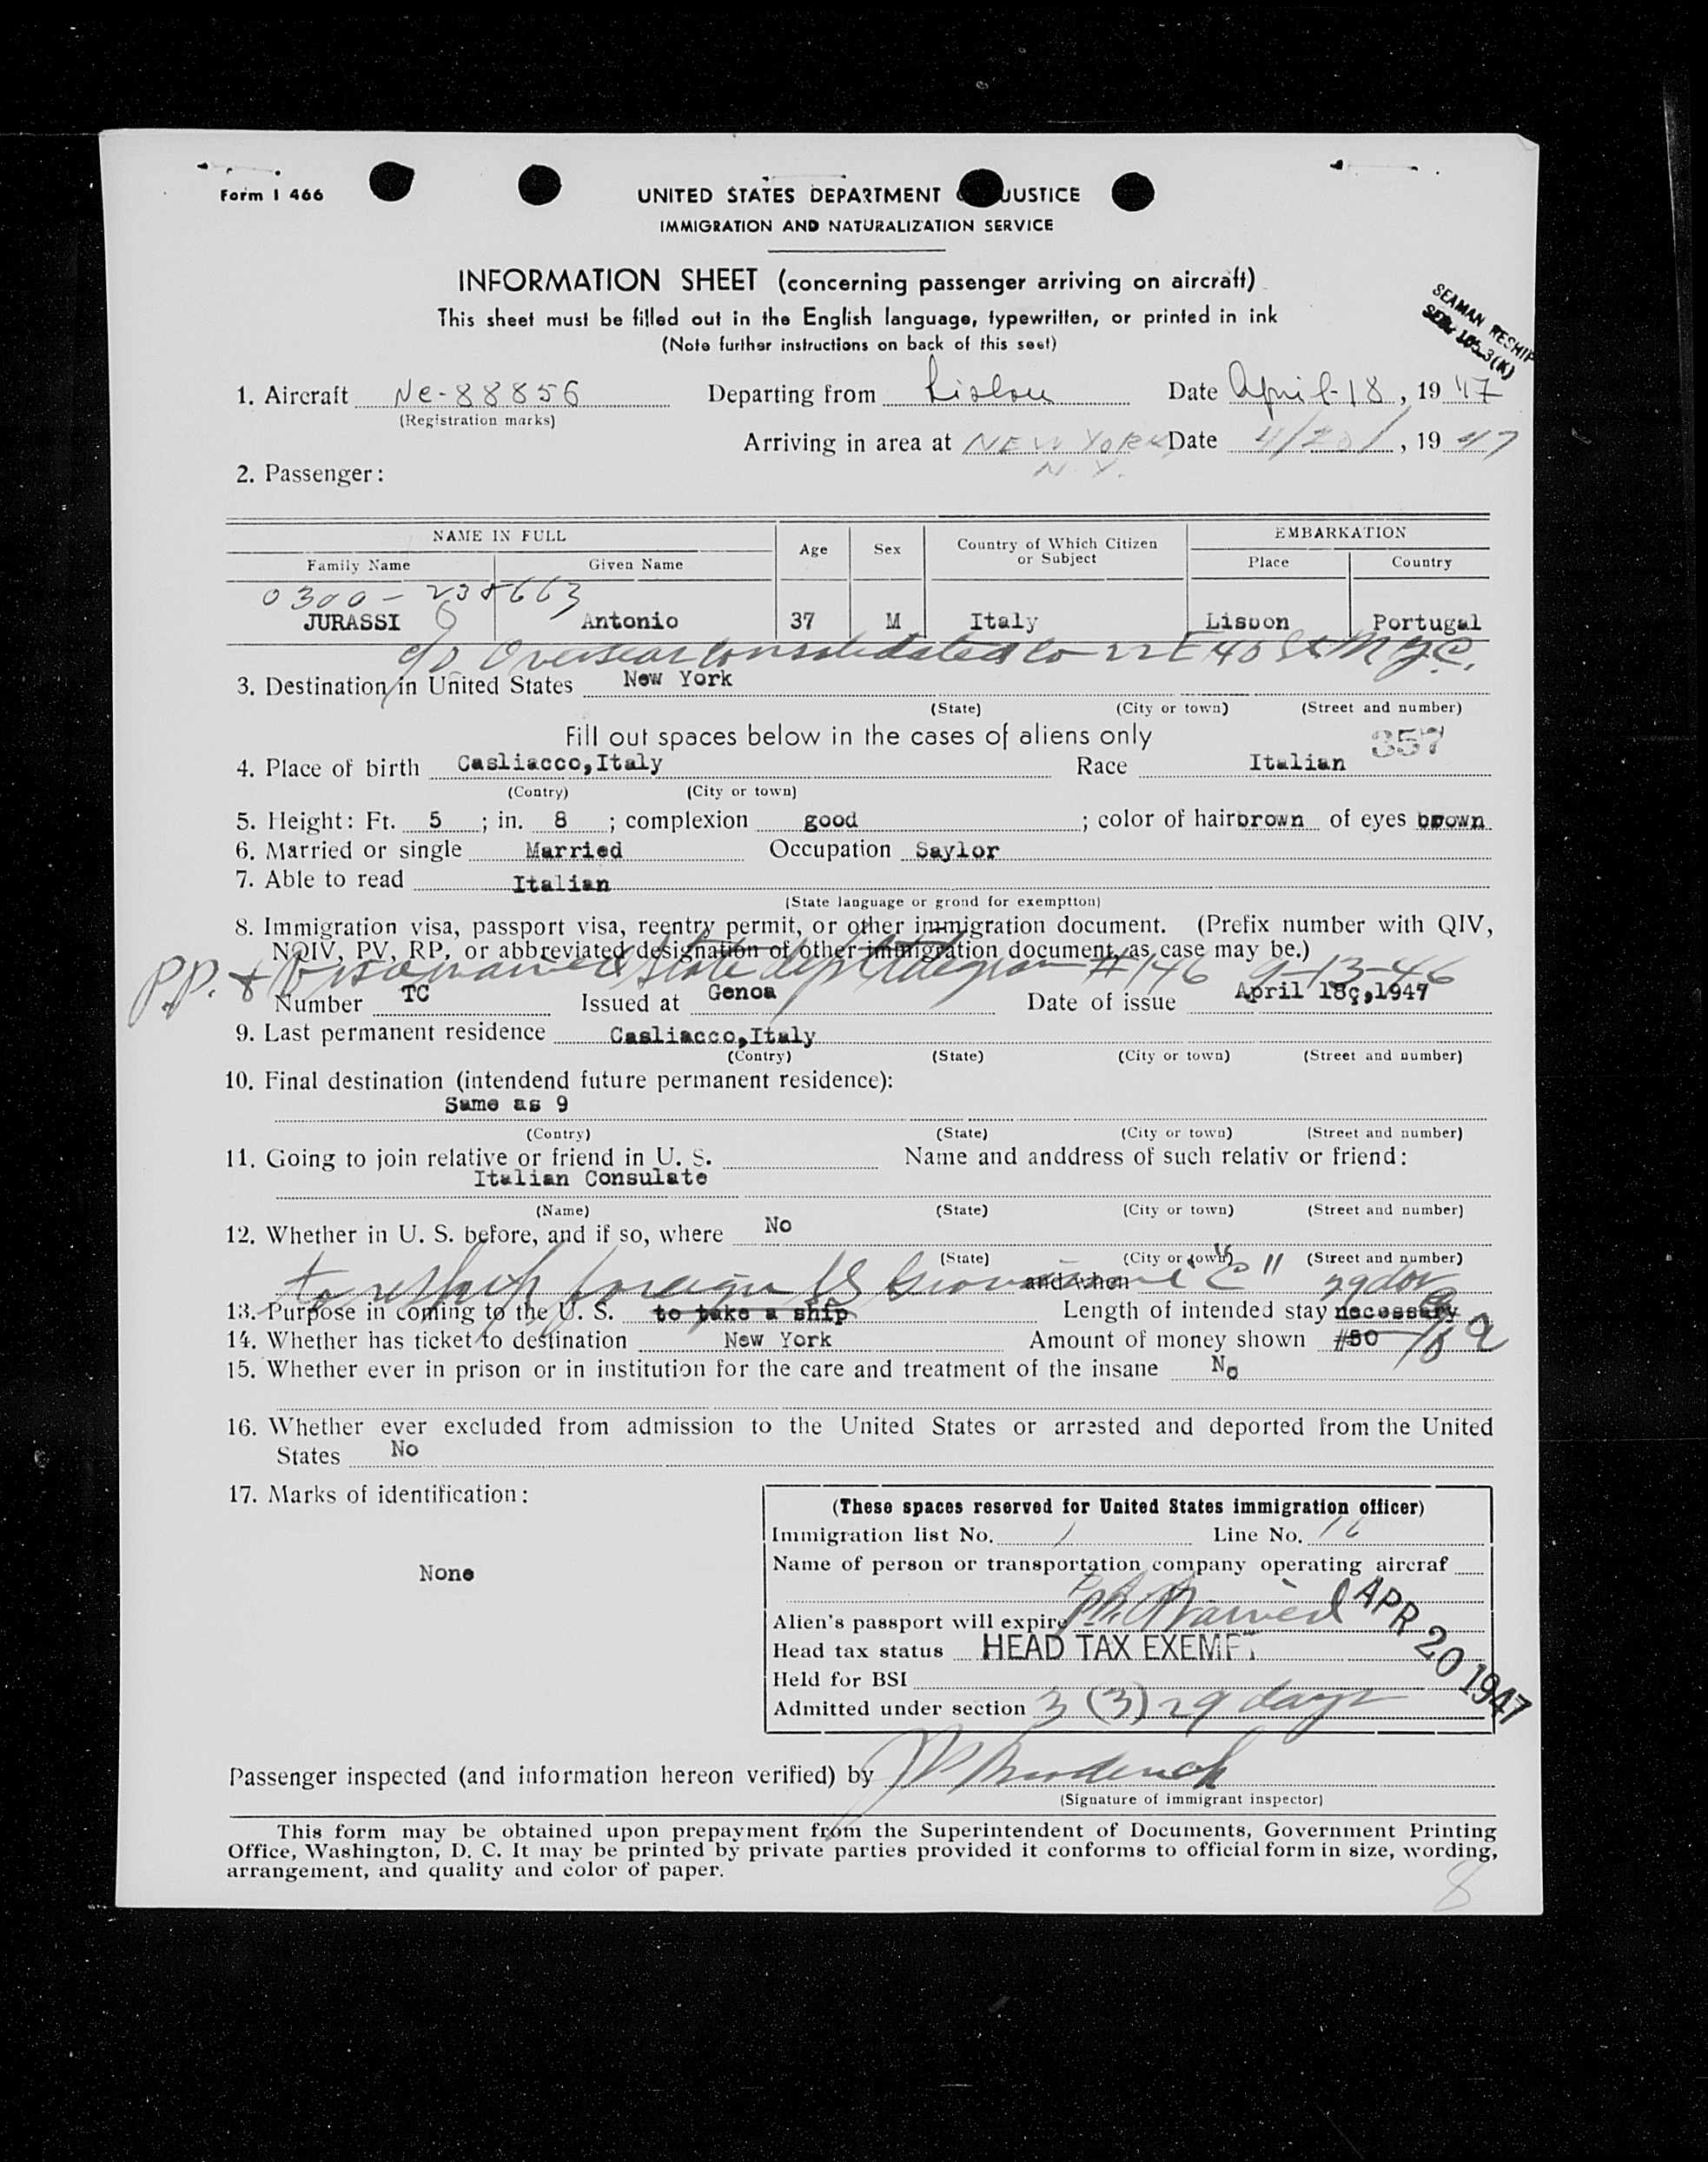 Form I 466
UNITED STATES DEPARTMENT JUSTICE
IMMIGRATION AND NATURALIZATION SERVICE
INFORMATION SHEET (concerning passenger arriving on aircraft)
This sheet must be filled out in the English language, typewritten, or printed in ink
(Note further instructions on back of this seet)
SEAMAN RESHIP
3(K)
1. Aircraft Nc-88856 Departing from Lisbon Date April-18, 19 47
(Registration marks)
Arriving in area at NEW YORK Date 4/20/, 19 47
N.Y.
2. Passenger:
NAME IN FULL Age Sex Country of Which Citizen or Subject EMBARKATION
Family Name Given Name Place Country
0300-
JURASSI Antonio 37 M Italy Lisbon Portugal
c/o Overseas Consolidated Co 22 E 40 St N.Y.C.
3. Destination in United States New York
(State) (City or town) (Street and number)
Fill out spaces below in the cases of aliens only
357
4. Place of birth Casliacco,Italy Race Italian
(Contry) (City or town)
5. Height: Ft. 5 ; in. 8 ; complexion good ; color of hair brown of eyes brown
6. Married or single Married Occupation Saylor
7. Able to read Italian
(State language or grond for exemption)
8. Immigration visa, passport visa, reentry permit, or other immigration document. (Prefix number with QIV,
NQIV, PV, RP, or abbreviated designation of other immigration document, as case may be.)
P.P. & Visa waived State dept telegram #146 9-13-46
Number TC Issued at Genoa Date of issue April 18ç,1947
9. Last permanent residence Casliacco,Italy
(Contry) (State) (City or town) (Street and number)
10. Final destination (intendend future permanent residence):
Same as 9
(Contry) (State) (City or town) (Street and number)
11. Going to join relative or friend in U. S. Name and anddress of such relativ or friend:
Italian Consulate
(Name) (State) (City or town) (Street and number)
12. Whether in U. S. before, and if so, where No
(State) (City or town) (Street and number)
to reship foreign "C" and when 29 days
13. Purpose in coming to the U. S. to take a ship Length of intended stay necessary
14. Whether has ticket to destination New York Amount of money shown #50
15. Whether ever in prison or in institution for the care and treatment of the insane No
16. Whether ever excluded from admission to the United States or arrested and deported from the United
States No
17. Marks of identification:
None
(These spaces reserved for United States immigration officer)
Immigration list No. 1 Line No. 16
Name of person or transportation company operating aircraf
Alien's passport will expire Waived
APR 20 1947
Head tax status HEAD TAX EXEMPT
Held for BSI
Admitted under section 3 (3) 29 days
Passenger inspected (and information hereon verified) by
(Signature of immigrant inspector)
This form may be obtained upon prepayment from the Superintendent of Documents, Government Printing
Office, Washington, D. C. It may be printed by private parties provided it conforms to official form in size, wording,
arrangement, and quality and color of paper.
8